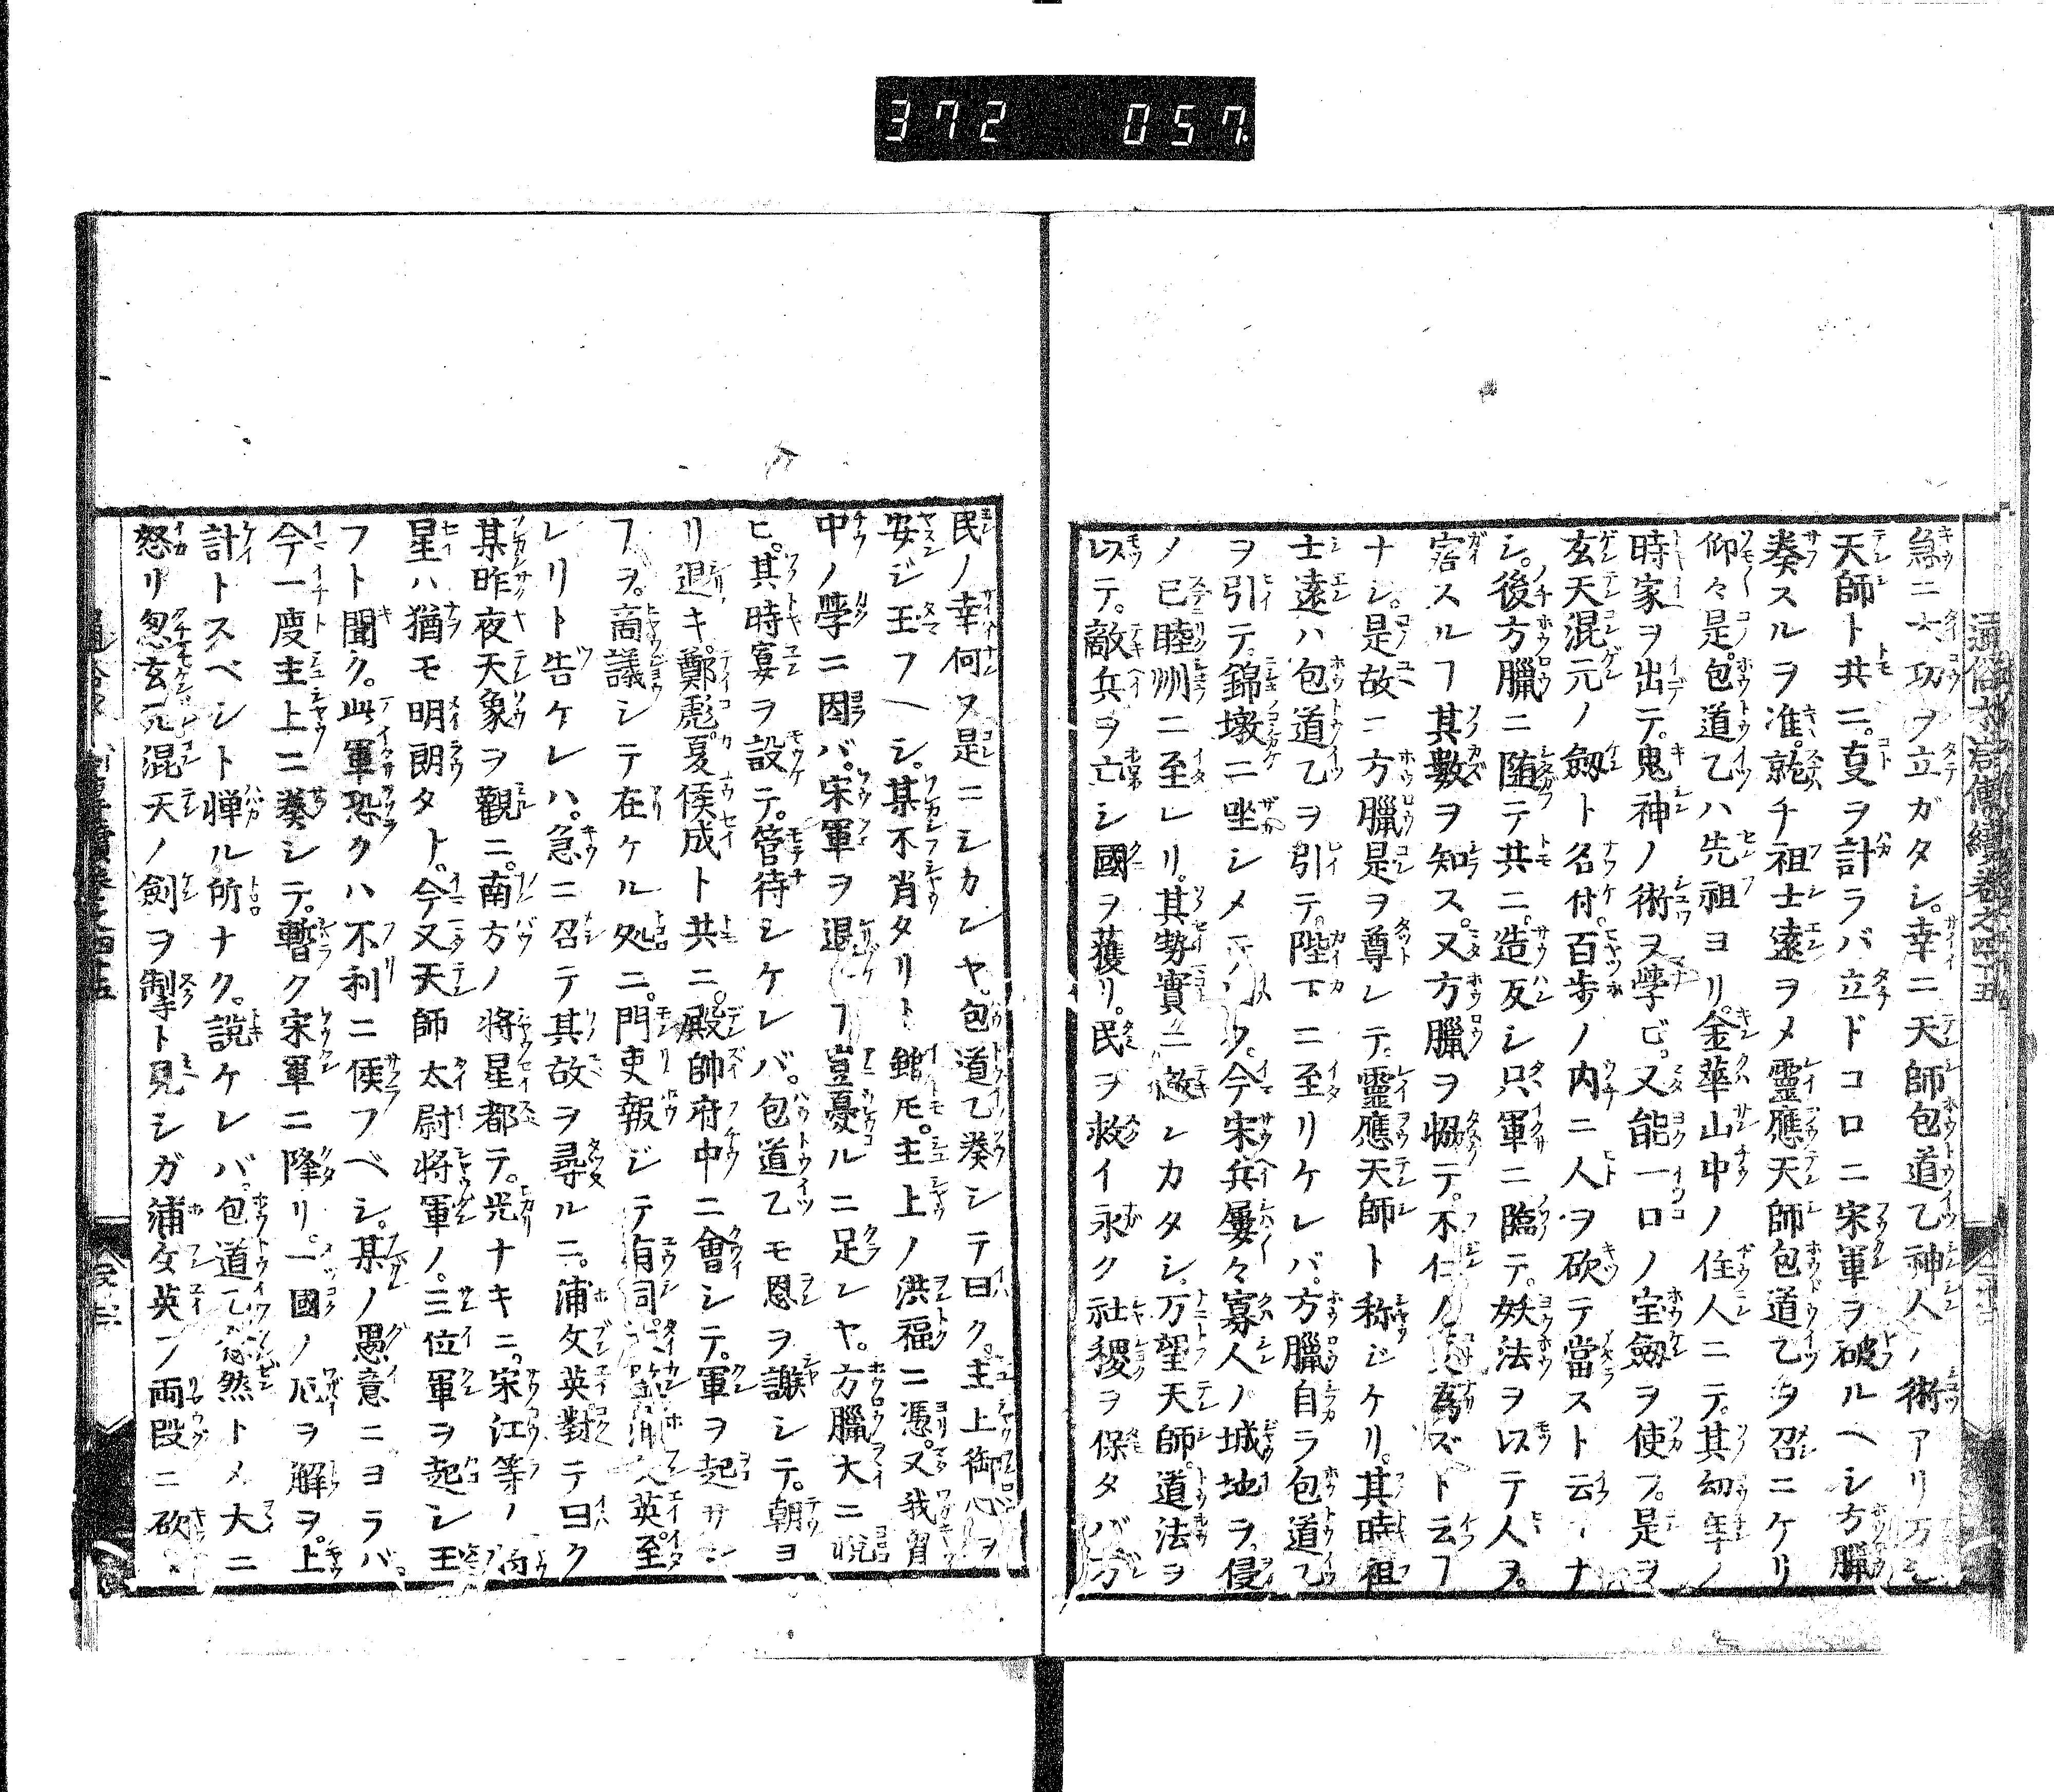 372 057
通俗水滸傳續卷之四十五
急ニ大功ヲ立ガタシ。幸ニ天師包道乙神人ノ術アリ万
天師ト共ニ。叓ヲ計ラバ立ドコロニ宋軍ヲ破ルヘシ方臘
奏スルヲ准。就チ祖士遠ヲメ靈應天師包道乙ヲ召ニケリ
仰々是。包道乙ハ先祖ヨリ。金華山中ノ住人ニテ。其幼年ノ
時家ヲ出テ。鬼神ノ術ヲ學ビ。又能一口ノ宝劔ヲ使フ。是ヲ
玄天混元ノ劔ト名付。百歩ノ内ニ人ヲ砍テ當スト云ヿナ
シ。後方臘ニ随テ共ニ。造反シ只軍ニ臨テ。妖法ヲ以テ人ヲ。
害スルヿ其數ヲ知ス。又方臘ヲ恊テ。不仁ノ為ズト云ヿ
ナシ。是故ニ方臘是ヲ尊レテ。靈應天師ト称ジケリ。其時祖
士遠ハ包道乙ヲ引テ。陛下ニ至リケレバ。方臘自ラ包道乙
ヲ引テ。錦墩ニ坐シメ ク。今宋兵屢々寡人ノ城地ヲ。侵
メ已睦州ニ至レリ。其勢實ニ敵シカタシ。万望天師。道法ヲ
以テ。敵兵ヲ亡シ國ヲ獲リ。民ヲ救イ永ク社稷ヲ保タバ万
民ノ幸何ヲ是ニシカンヤ。包道乙奏シテ曰ク。主上御心ヲ
安ジ玉フヘシ。某不肖タリト雖モ。主上ノ洪福ニ憑。又我胷
中ノ學ニ因バ。宋軍ヲ退 ヿ豈憂ルニ足ンヤ。方臘大ニ悅
ヒ。其時宴ヲ設テ。管待シケレバ。包道乙モ恩ヲ謝シテ。朝ヨ
リ退キ。鄭彪夏侯成ト共ニ。殿帥府中ニ會シテ。軍ヲ起サン
ヿヲ。商議シテ在ケル処ニ。門吏報ジテ有司 浦文英至
レリト告ケレハ。急ニ召テ其故ヲ尋ルニ。浦文英對テ曰ク
某昨夜天象ヲ觀ニ。南方ノ将星都テ。光ナキニ。宋江等ノ
星ハ猶モ明朗タト。今又天師太尉将軍ノ。三位軍ヲ起シ王
フト聞ク。此軍恐クハ不利ニ候フベシ。某ノ愚意ニヨラバ。
今一度主上ニ奏シテ。暫ク宋軍ニ降リ。一國ノ厄ヲ解ヲ。上
計トスベシト惮ル所ナク。說ケレバ。包道乙忿然トメ大ニ
怒リ忽玄元混天ノ劍ヲ掣ト見シガ浦文英ヲ両段ニ砍